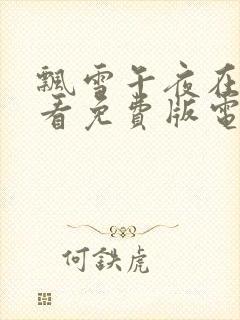 飄雪午夜在
看免費版電
何鉄虎